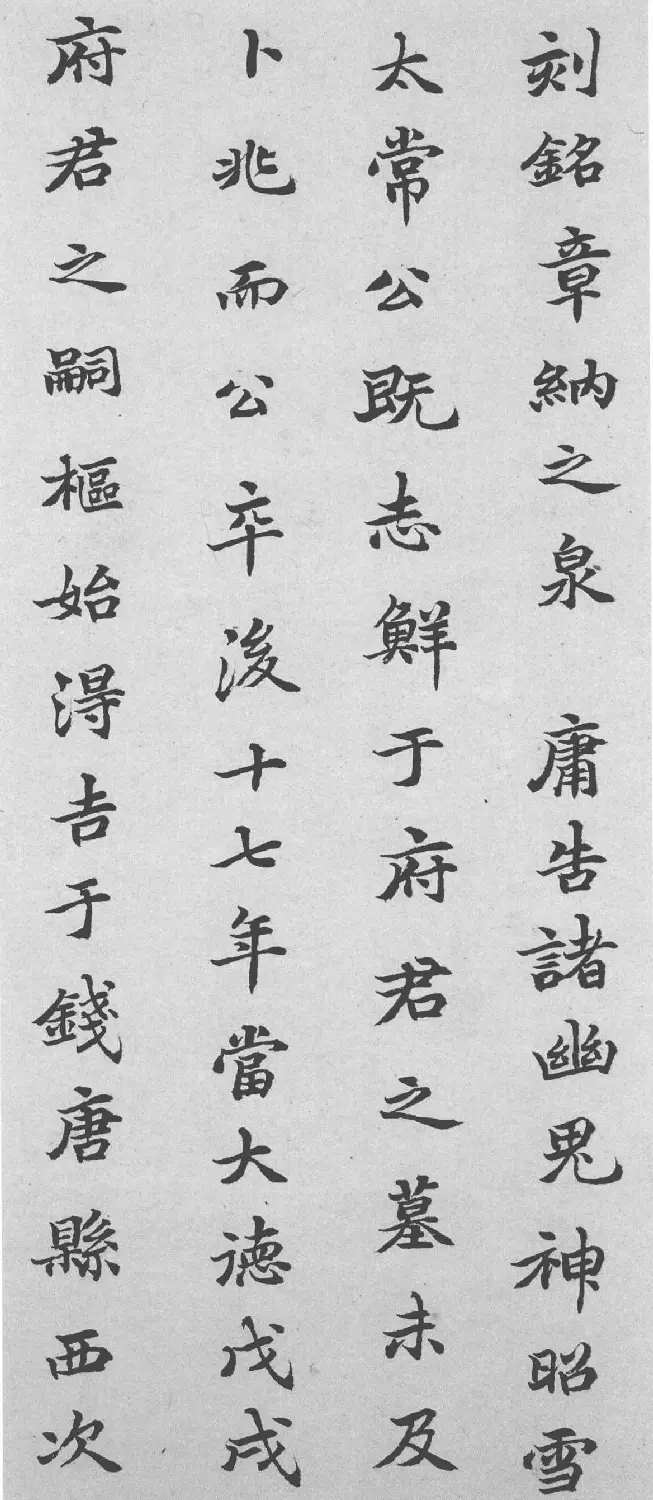 刻銘章納之泉 庸告諸幽鬼神昭雪
太常公既志鮮于府君之墓未及
卜兆而公卒後十七年當大德戊戌
府君之嗣樞始得吉于錢唐縣西次